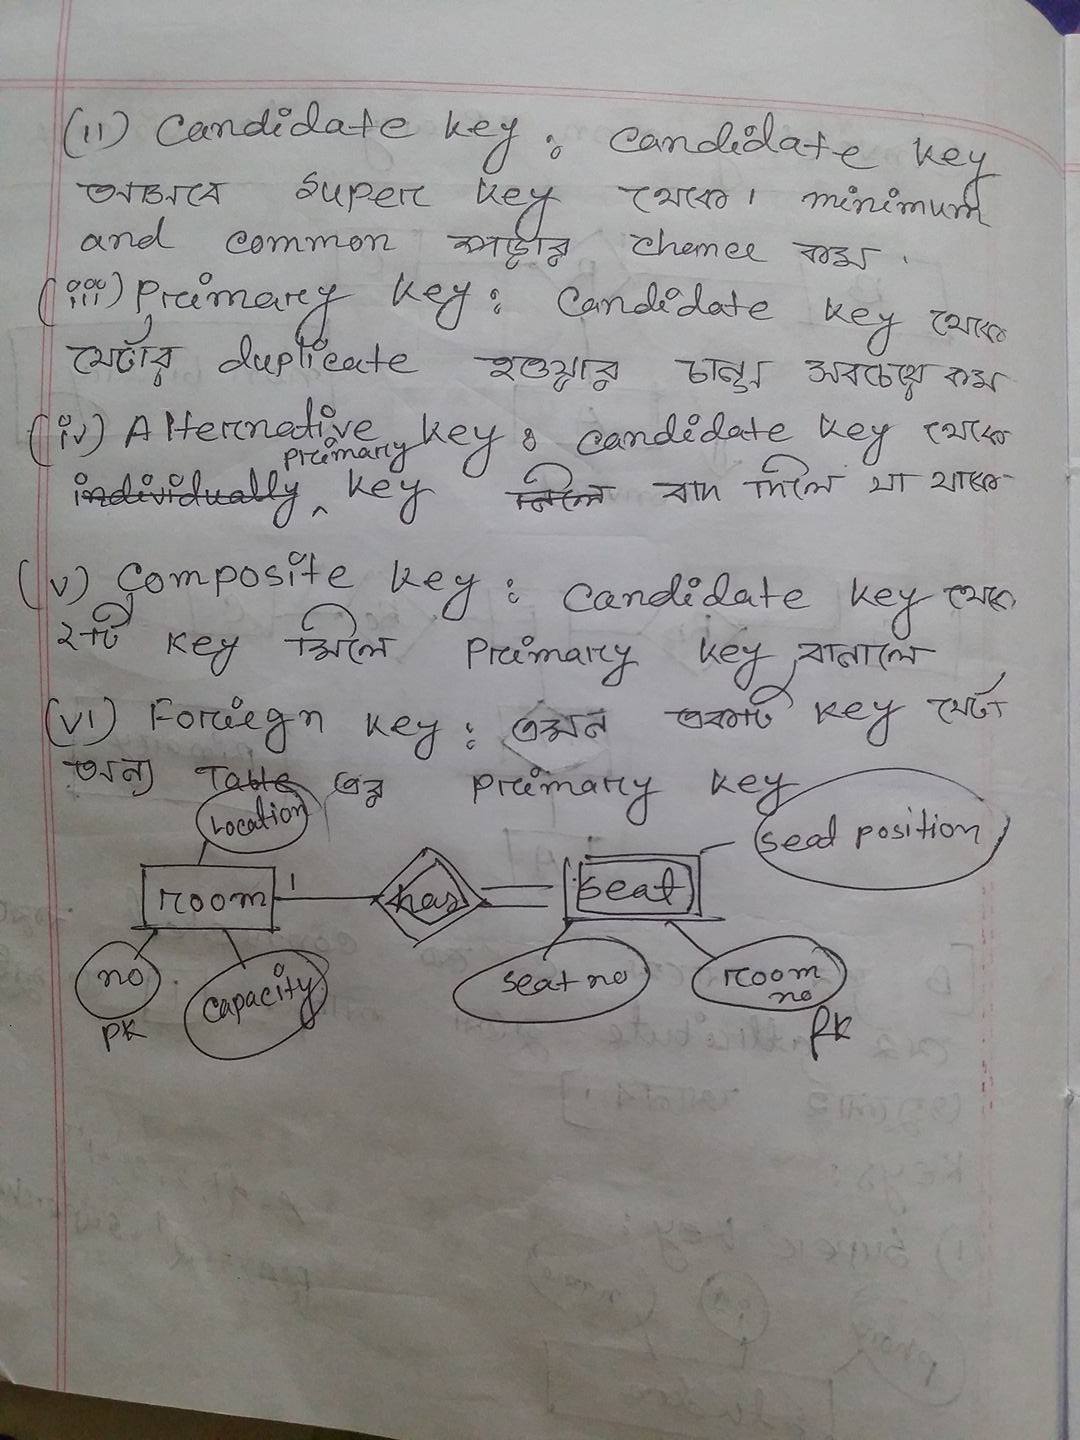 (ii) Candidate key : Candidate key
আসবে super key থেকে। minimum
and common পড়ার chance কম.
(iii) Primary key : Candidate key থেকে
যেটার duplicate হওয়ার চান্স সবচেয়ে কম
(iv) Alternative key : Candidate key থেকে
primary
individually key নিলে বাদ দিলে যা থাকে
(v) Composite key : Candidate key থেকে
২টি key মিলে Primary key বানালে
(vi) Foriegn key : এমন একটি key যেটা
অন্য Table এর primary key
Location
seat position
room 1 has seat
no capacity seat no room no
PK PK